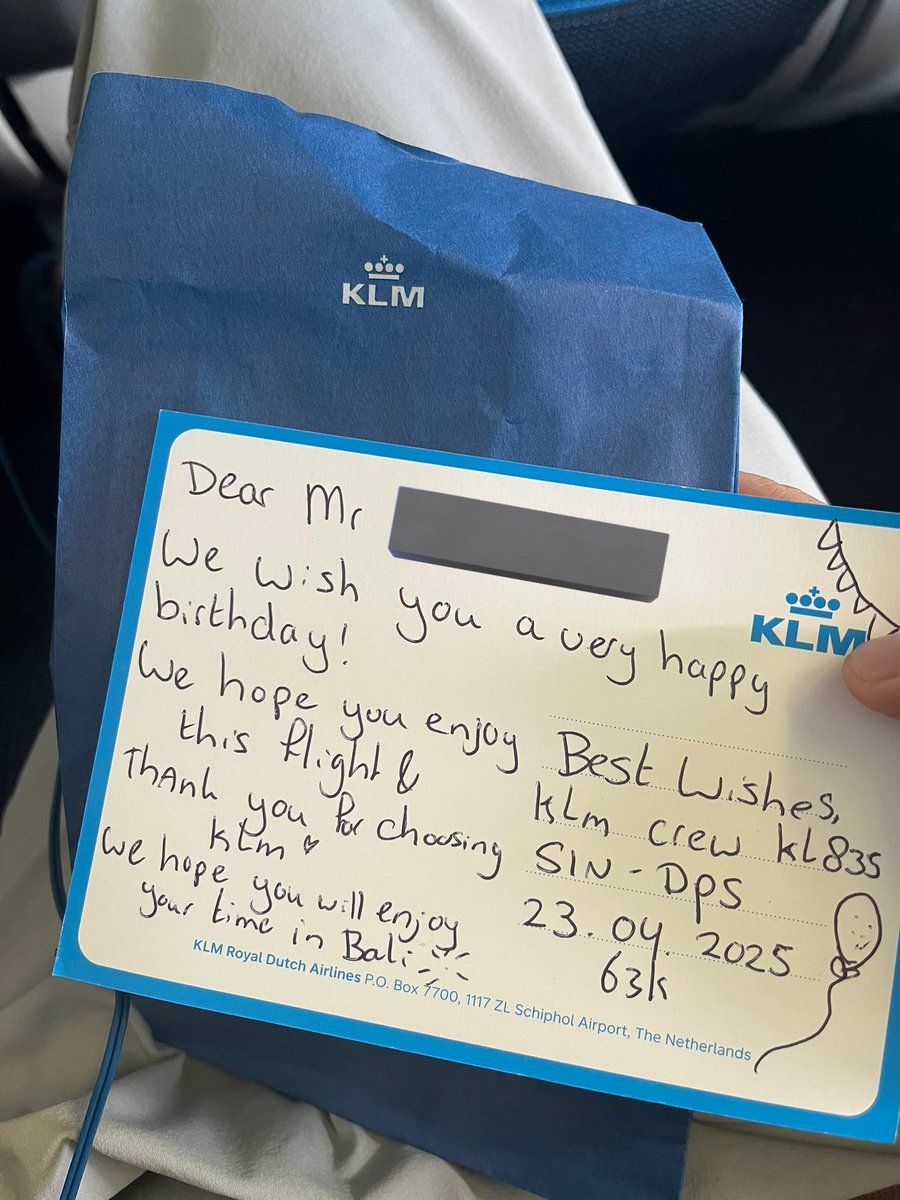 KLM
Dear Mr
We wish you a very happy
birthday!
We hope you enjoy
this flight &
Thank you for choosing
KLM
We hope you will enjoy
your time in Bali
KLM
Best Wishes,
KLM crew KL835
SIN - DPS
23.04.2025
63K
KLM Royal Dutch Airlines P.O. Box 7700, 1117 ZL Schiphol Airport, The Netherlands